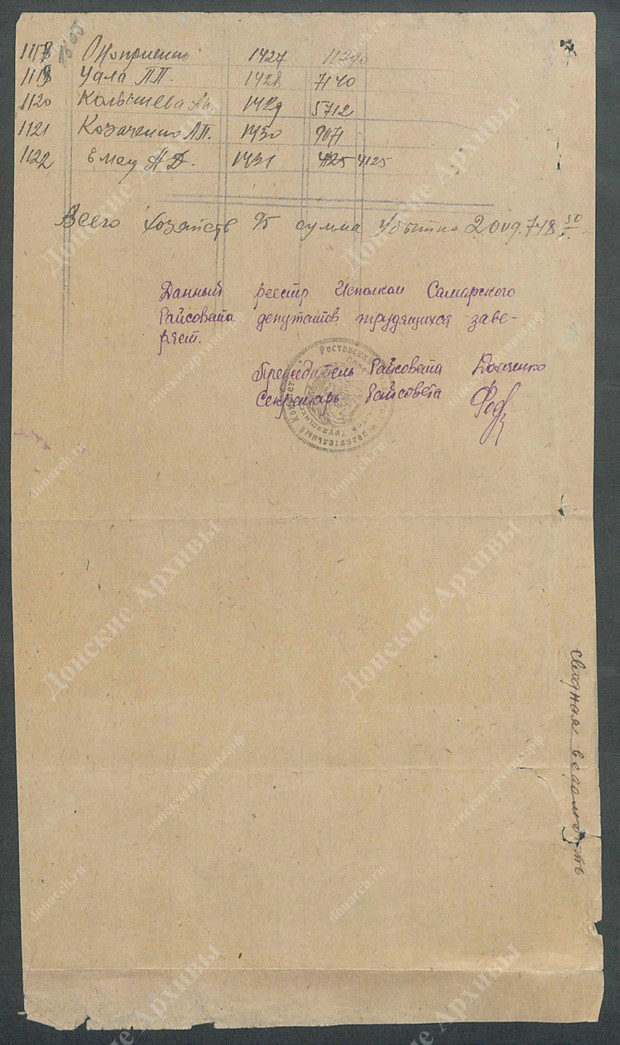 1118 Оноприенко 1427 11240
1119 Чала П.П. 1428 7140
1120 1429 5712
1121 Козаченко П.П. 1430 9071
1122 Емец А Д. 1431 4125 4125
Всего хозяйств сумма убытка 2009.718
Данный реестр Исполком Самарского
Райсовета депутатов трудящихся заве-
ряет.
Председатель Райсовета
Секретарь Райсовета
Сводная ведомость
Донские Архивы
donarch.ru
донскиеархивы.рф